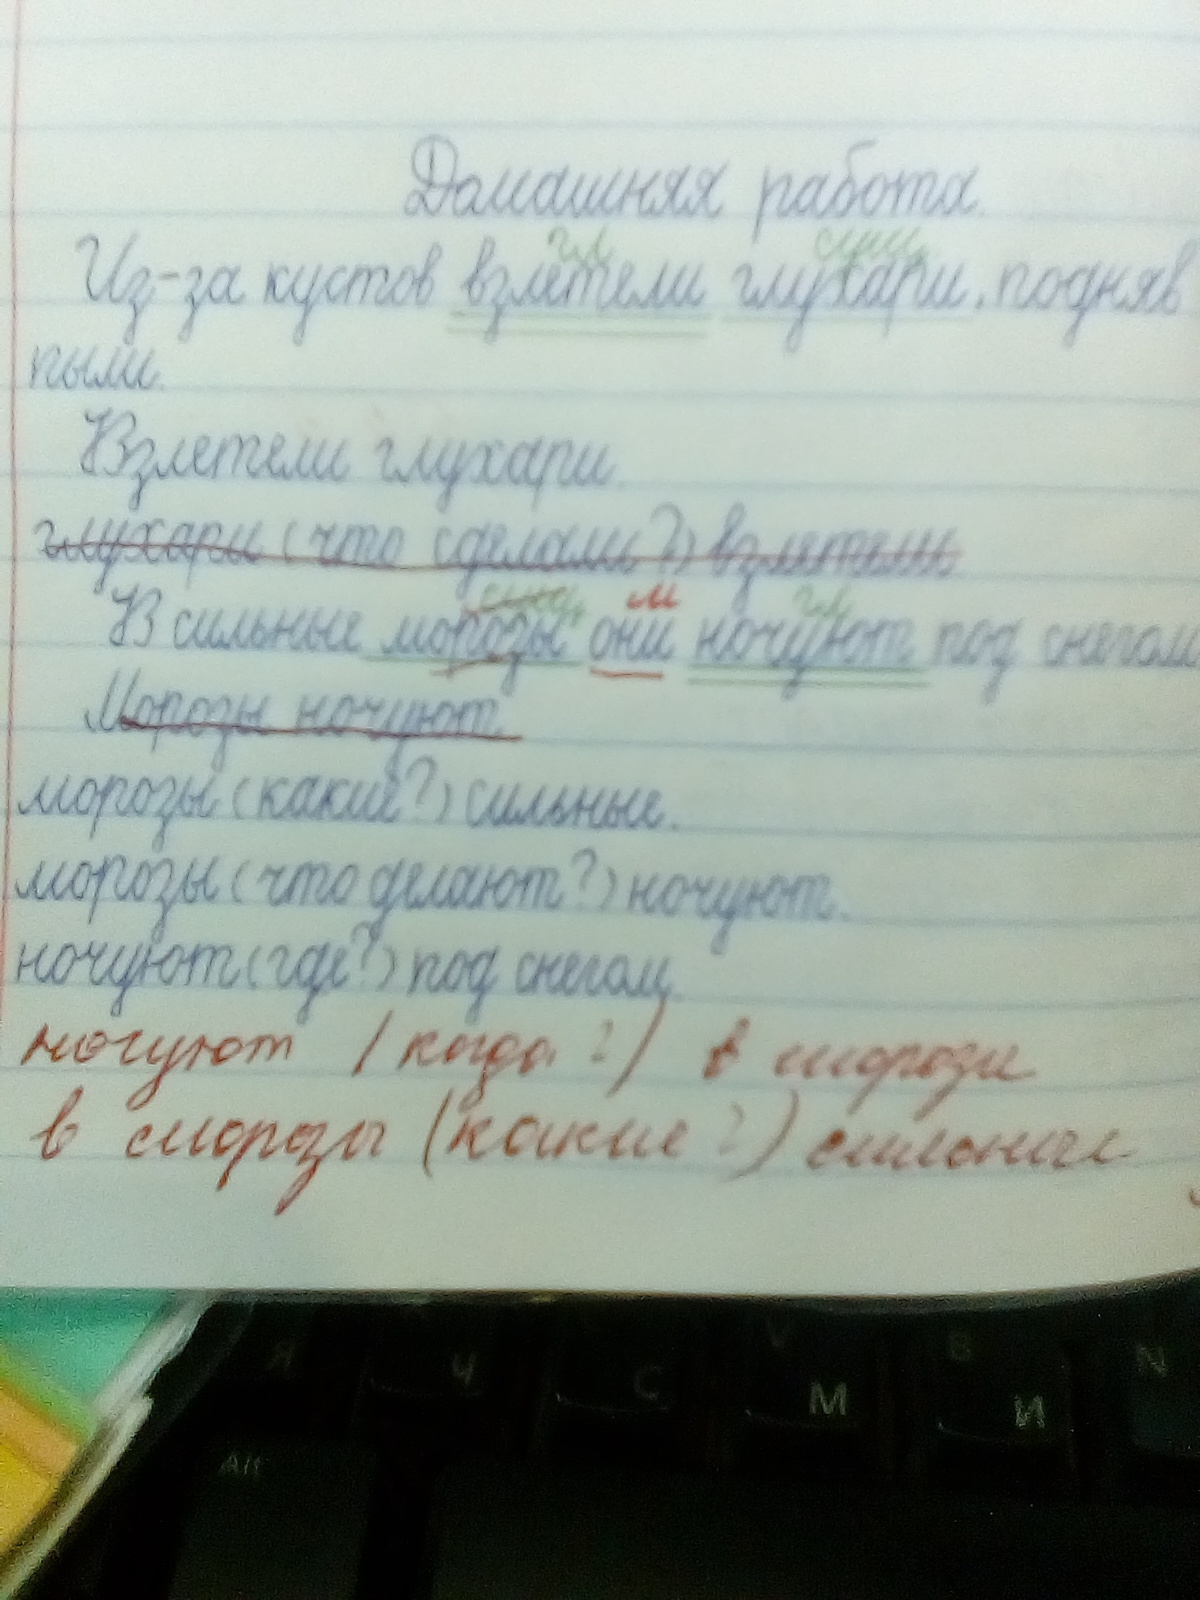 Домашняя работа.
гл сущ
Из-за кустов взлетели глухари, подняв
пыль.
Взлетели глухари.
глухари (что сделали?) взлетели
сущ м гл
В сильные морозы они ночуют под снегом
Морозы ночуют.
морозы (какие?) сильные.
морозы (что делают?) ночуют.
ночуют (где?) под снегом.
ночуют (когда?) в морозы
в морозы (какие?) сильные
Я Ч С V М B И N
Alt